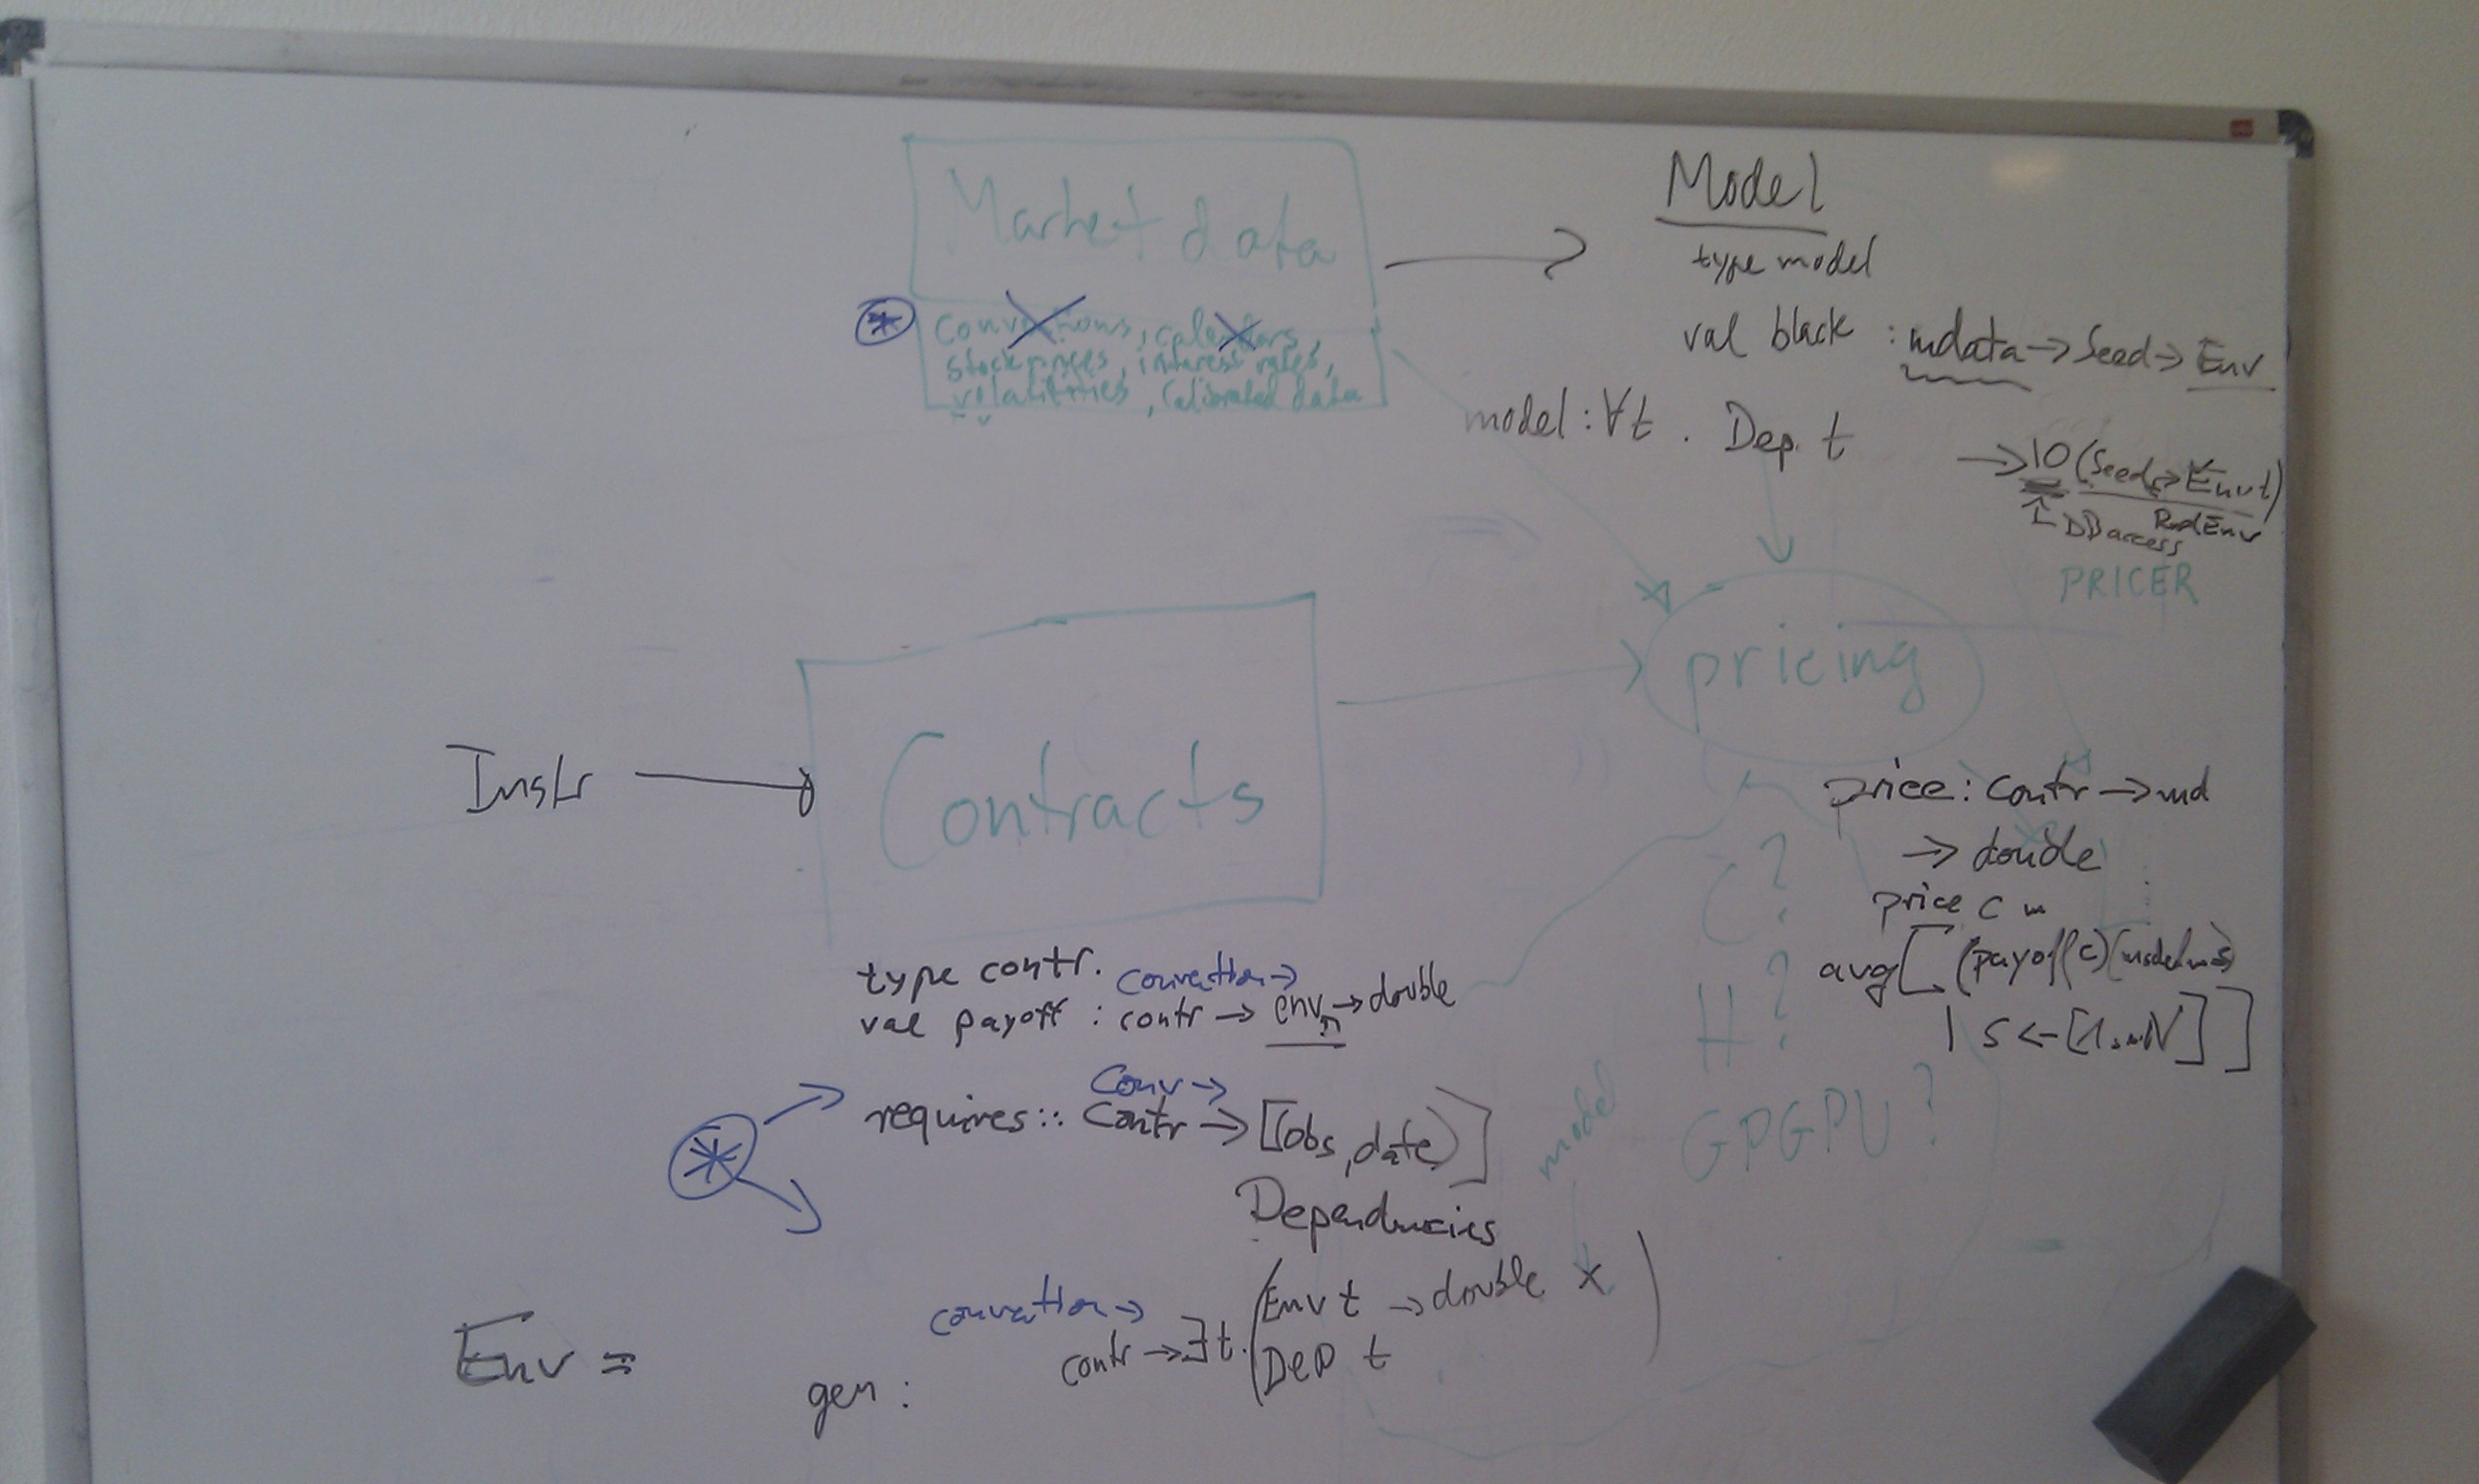 Market data
conventions, calendars,
stock prices, interest rates,
volatilities, Calibrated data
Model
type model
val black : mdata → Seed → Env
model : ∀t . Dep t → IO (Seed → Env t)
DB access
Rnd Env
PRICER
pricing
Instr
Contracts
price : contr → md
→ double
price c m
avg [ (payoff(c)(model m s)
| s <- [1...N] ]
C ?
H ?
GPGPU ?
model
type contr.
convention →
val payoff : contr → env → double
Conv →
requires :: Contr → [(obs, date)]
Dependencies
convention →
gen : contr → ∃t. (Env t → double ×
Dep t)
Env =